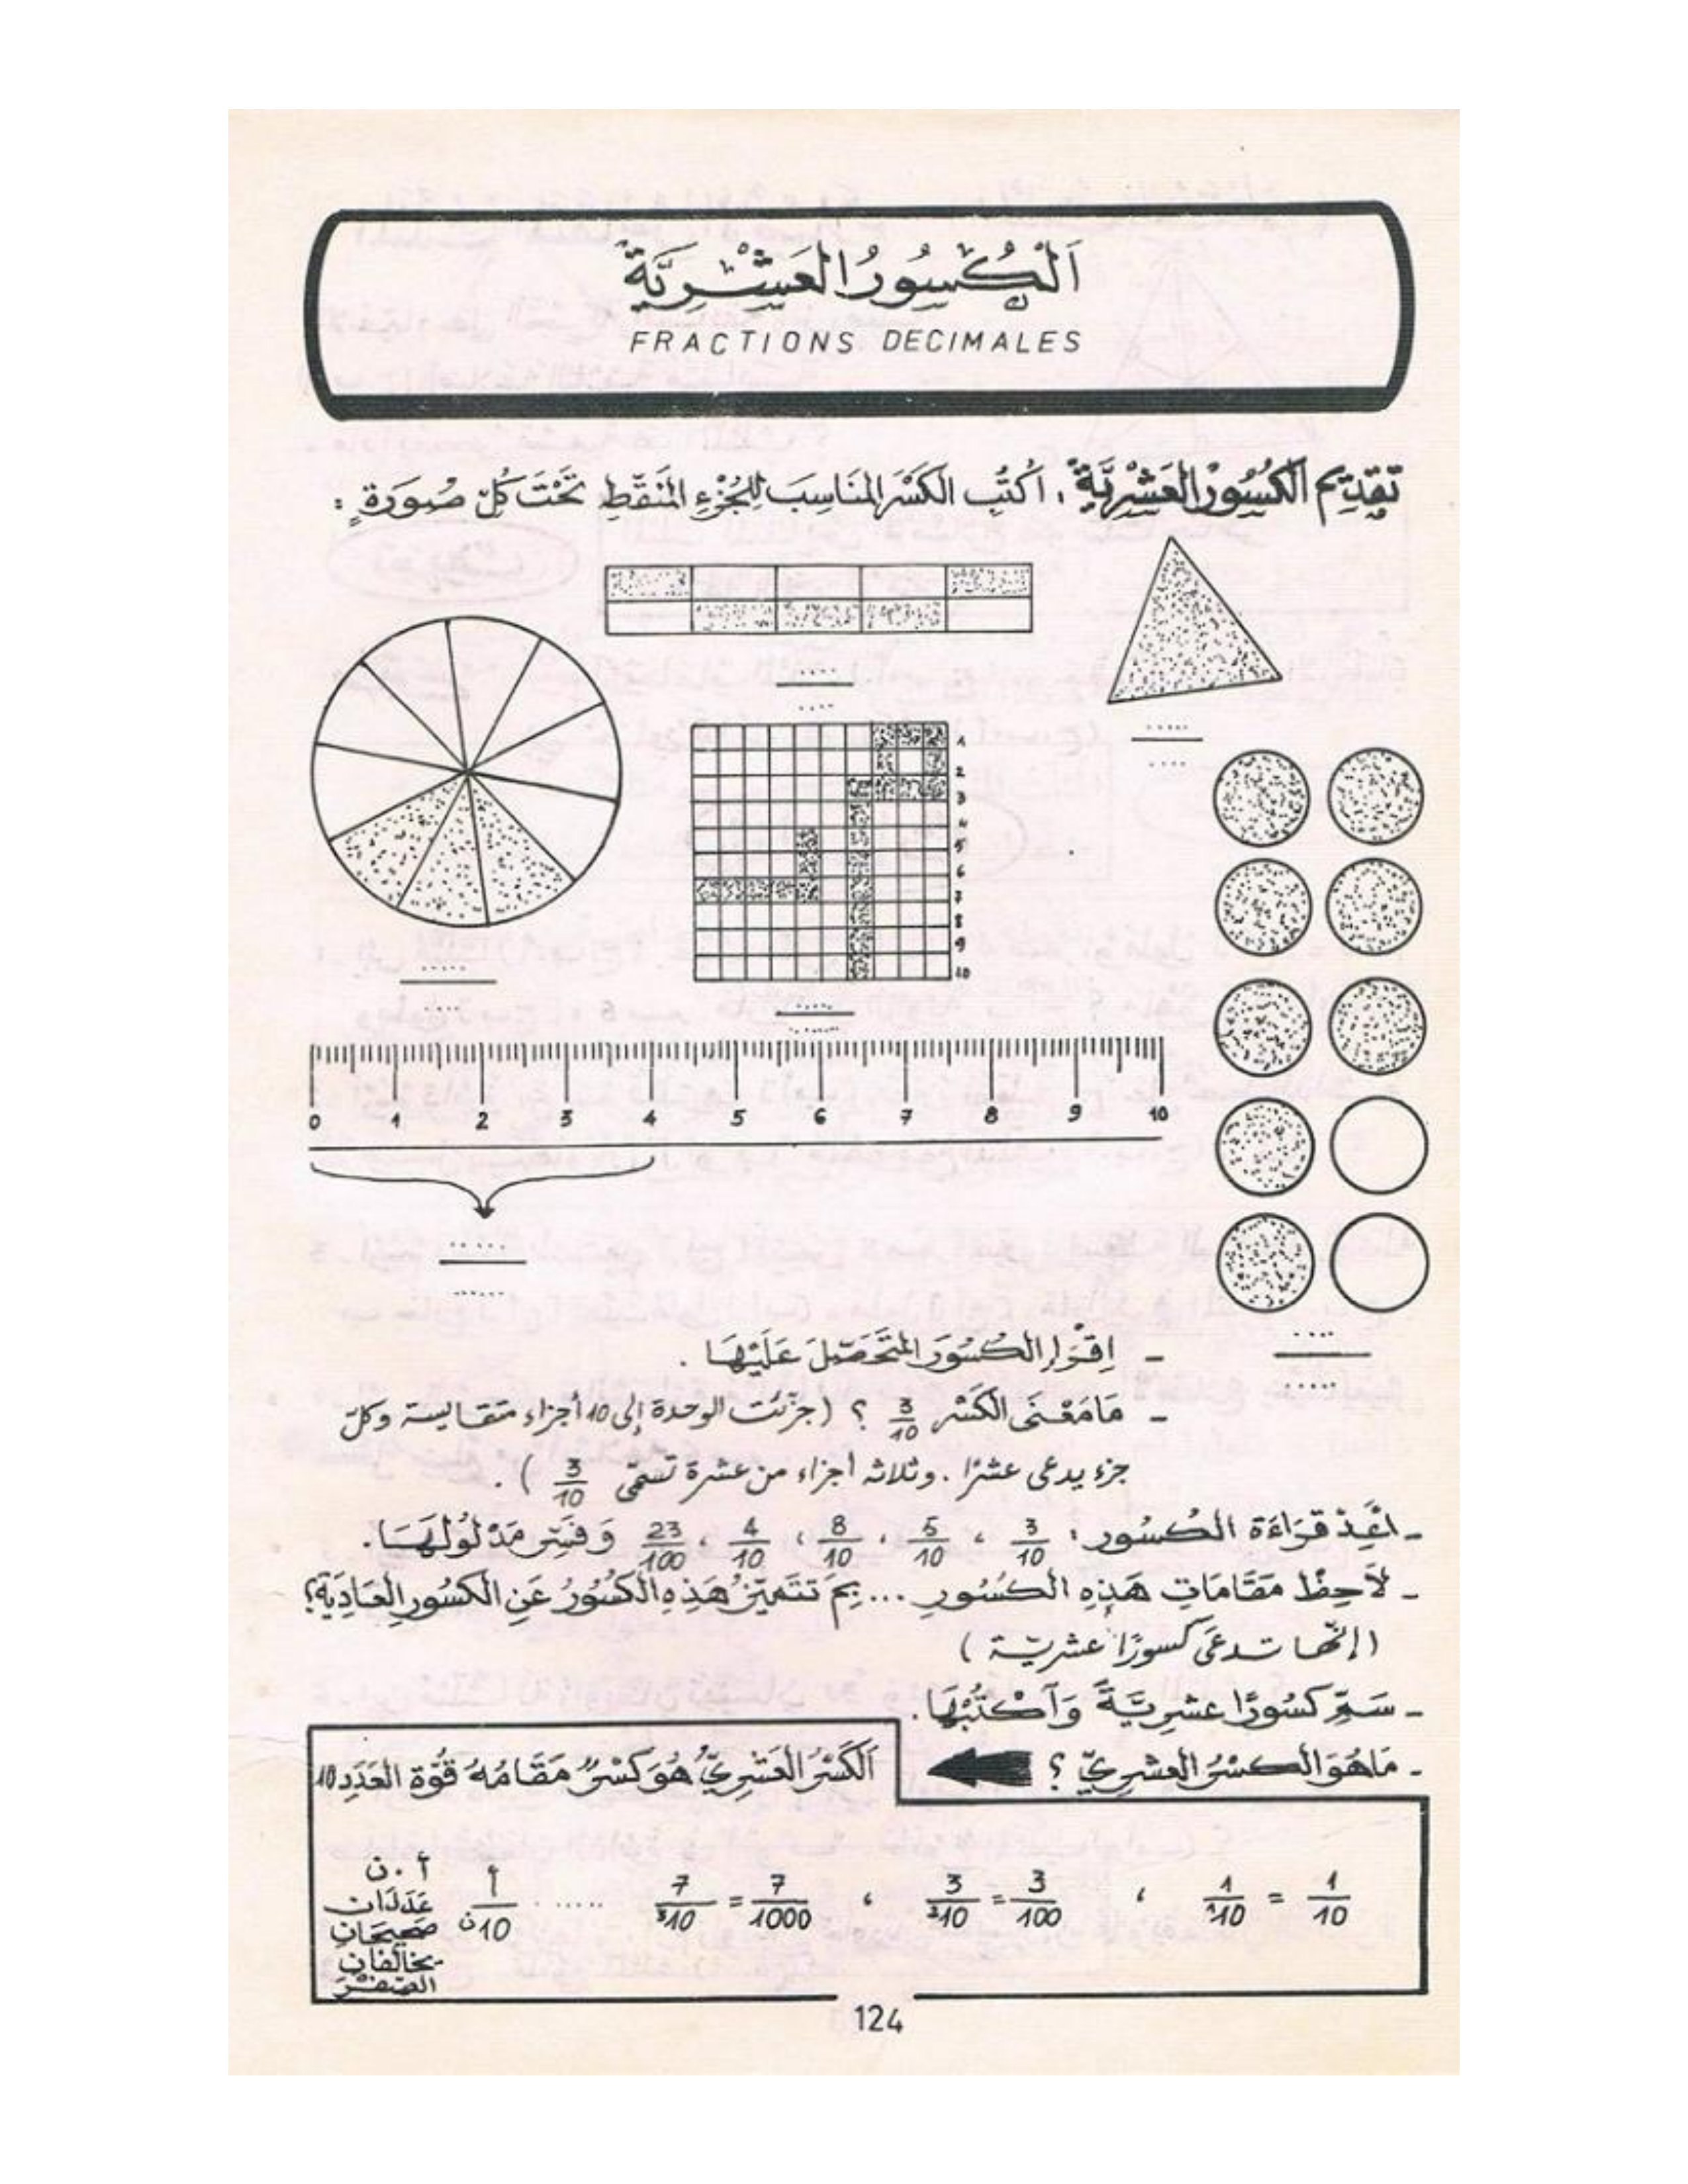 اَلْكُسُورُ الْعَشْرِيَّةُ
FRACTIONS DECIMALES
تَقْدِيم اَلْكُسُورْ الْعَشْرِيَّةْ : اُكْتُبِ الكَسْرَ المُنَاسِبَ لِلْجُزْءِ المُنَقَّطِ تَحْتَ كُلِّ صُورَةٍ :
.....
....
.....
....
1
2
3
4
5
6
7
8
9
10
.....
....
.....
......
0 1 2 3 4 5 6 7 8 9 10
......
......
....
.....
- اِقْرَإِ الكُسُورَ المُتَحَصَّلَ عَلَيْهَا .
- مَا مَعْنَى الكَسْرِ 3/10 ؟ (جزّئت الوحدة إلى 10 أجزاء متقايسة وكلّ
جزء يدعى عشرًا . وثلاثة أجزاء من عشرة تسمّى 3/10 ) .
- أَعِدْ قِرَاءَة الكُسُور : 3/10 ، 5/10 ، 8/10 ، 4/10 ، 23/100 وَفَسِّرْ مَدْلُولَهَا.
- لَاحِظْ مَقَامَاتِ هَذِهِ الكُسُورِ ... بِمَ تَتَمَيَّزُ هَذِهِ الكُسُورُ عَنِ الكسُورِ العَادِيَةِ؟
(إنّها تدعَى كسورًا عشريّة )
- سَمِّ كسُورًا عشرِيَّةً وَآكْتُبْهَا.
- مَا هُوَ الكسْرُ العشرِيّ ؟
اَلكَسْرُ العَشْرِيّ هُوَ كَسْرٌ مَقَامُهُ قُوّة العَدَدِ 10
1/10 = 1/10¹ ، 3/100 = 3/10² ، 7/1000 = 7/10³ ...... أ/10ن
أ . ن
عَدَدَان
صَحِيحَانِ
يخالفان
الصّفْرَ
124